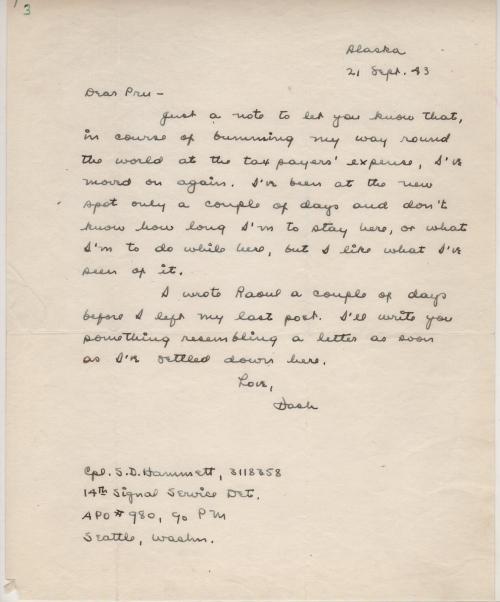 3
Alaska
21 Sept. 43
Dear Pru -
Just a note to let you know that,
in course of bumming my way round
the world at the tax payers' expense, I've
moved on again. I've been at the new
spot only a couple of days and don't
know how long I'm to stay here, or what
I'm to do while here, but I like what I've
seen of it.
I wrote Raoul a couple of days
before I left my last post. I'll write you
something resembling a letter as soon
as I've settled down here.
Love,
Dash
Cpl. S.D. Hammett, 3118358
14th Signal Service Det.
APO # 980, c/o P M
Seattle, Washn.